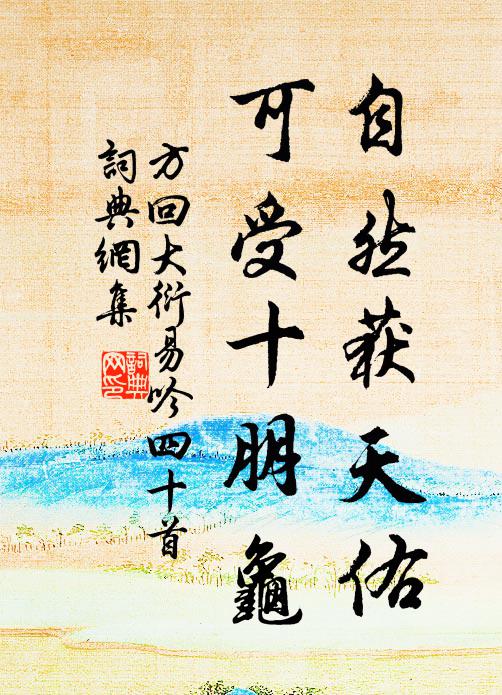 自然获天佑
可受十朋龜
方回大衍易吟四十首
詞典網集
詞典網印